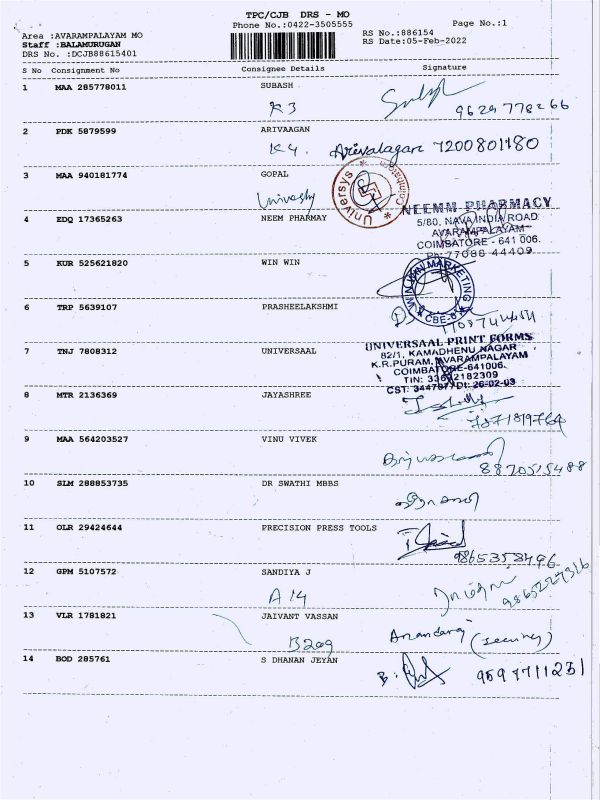 TPC/CJB DRS - MO
Phone No.:0422-3505555
Page No.:1
Area :AVARAMPALAYAM MO
Staff :BALAMURUGAN
DRS No. :DCJB88615401
RS No.:886154
RS Date:05-Feb-2022
S No Consignment No Consignee Details Signature
1 MAA 285778011 SUBASH
K3
9629778266
2 PDK 5879599 ARIVAAGAN
K4. Arivalagan 7200801180
3 MAA 940181774 GOPAL
Universys Coimbatore
4 EDQ 17365263 NEEM PHARMAY
NEEMM PHARMACY
5/80, NAVA INDIA ROAD
AVARAMPALAYAM
COIMBATORE - 641 006.
Ph: 77088 44409
5 KUR 525621820 WIN WIN
WIN WIN MARKETING
CBE-6
6 TRP 5639107 PRASHEELAKSHMI
7 TNJ 7808312 UNIVERSAAL
UNIVERSAAL PRINT FORMS
82/1, KAMADHENU NAGAR
K.R.PURAM, AVARAMPALAYAM
COIMBATORE-641006.
8 MTR 2136369 JAYASHREE
7871819764
9 MAA 564203527 VINU VIVEK
8870515488
10 SLM 288853735 DR SWATHI MBBS
11 OLR 29424644 PRECISION PRESS TOOLS
9865353496
12 GPM 5107572 SANDIYA J
A 14
13 VLR 1781821 JAIVANT VASSAN
B209
Anandaraj
14 BOD 285761 S DHANAN JEYAN